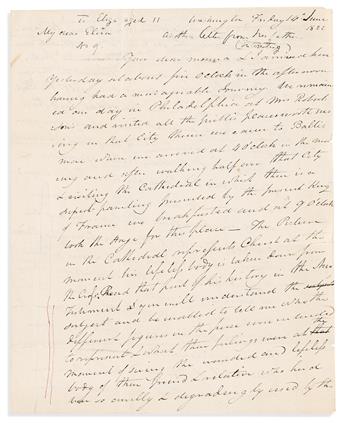 To Eliza aged 11 Washington Friday 14 June
My dear Eliza another letter from her father 1822
No 9
Your dear mama & I arrived here
Yesterday at about five OClock in the afternoon
having had a most agreeable Journey. We remained
one day in Philadelphia at Mrs
and visited all the public places worth see
ing in that City thence we came to Balti
more when we arrived at 4 oClock in the mor
ning and after walking half over that City
& visiting the Cathedral in which there is a
superb painting presented by the present King
of France we breakfasted and at 9 OClock
took the stage for this place — The Picture
in the Cathedral represents Christ at the
moment his lifeless body is taken down from
the Cross. Read that part of his history in the New
Testament & you will understand the
subject and be enabled to tell me who the
different figures in the piece were intended
to represent & what their feelings were at the
moment of seeing the wounded and lifeless
body of their friend & relative who had
been so cruelly & degradingly used by the